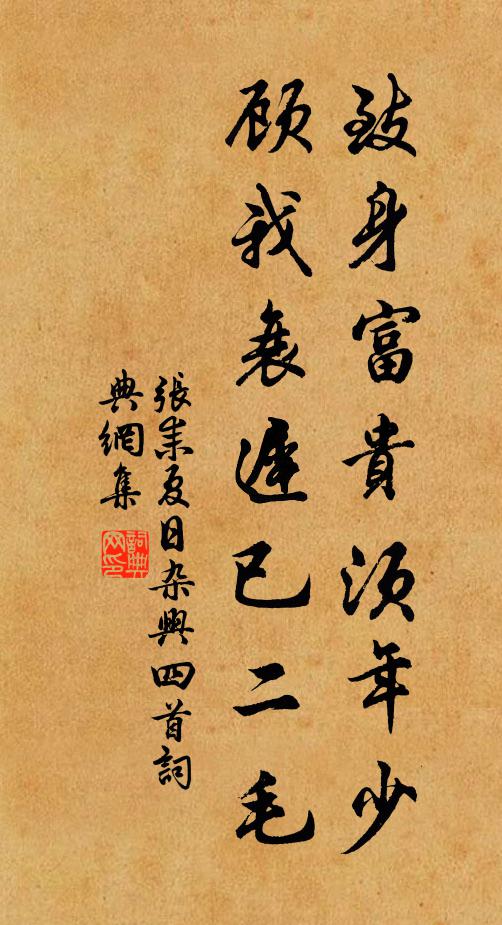 致身富貴須年少
顧我衰遲已二毛
張耒夏日杂興四首詞
典網集
詞典
网印